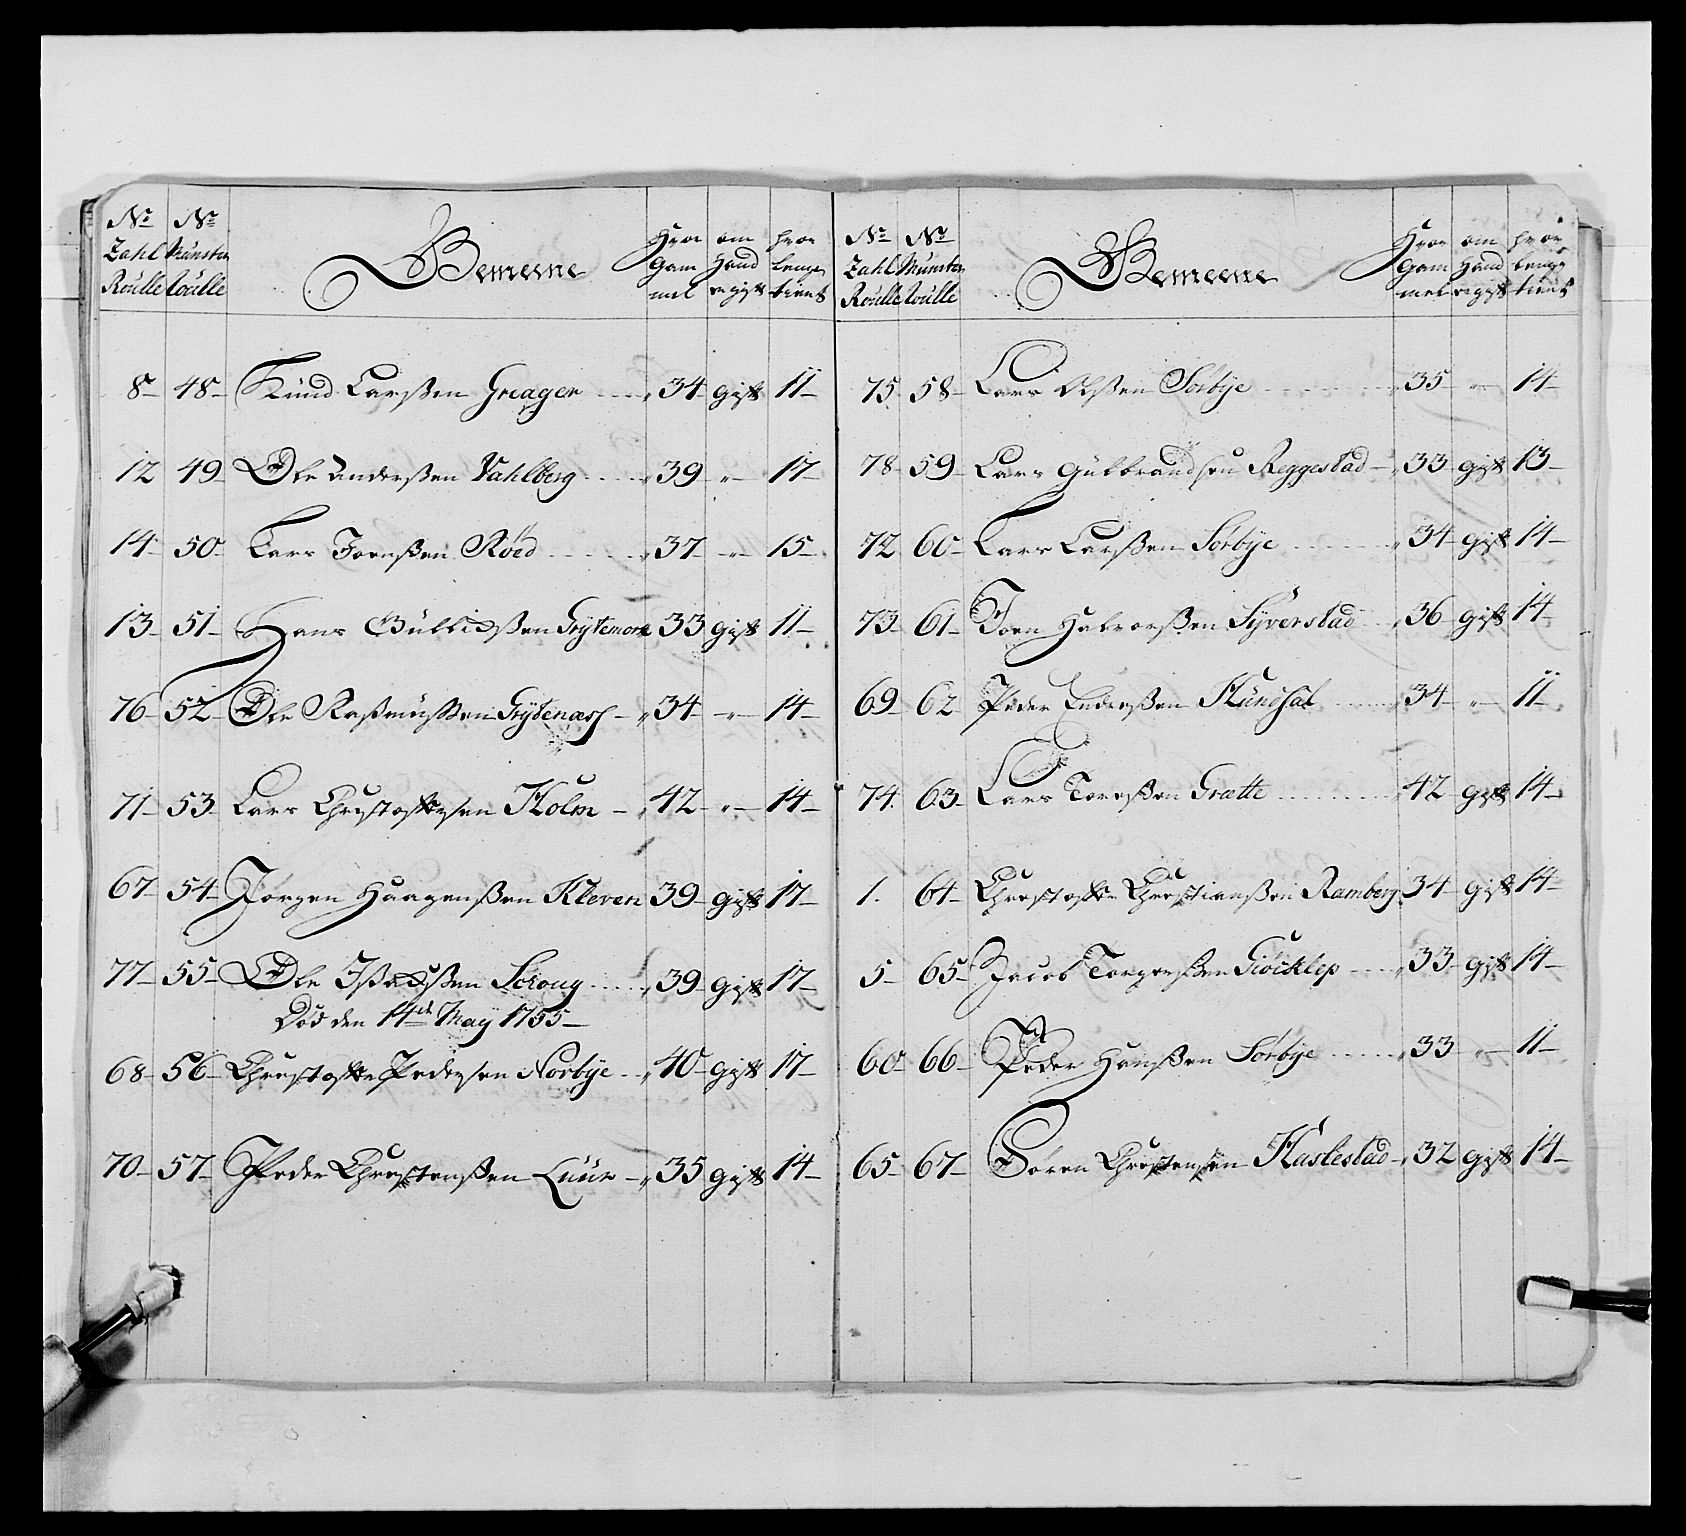 No Zahl Roulle | No Munster Roulle | Gemeene | Hvor Gam mel | om Hand er gift | hvor lenge tient
8 48 Knud Larsßen Greager 34 gift 11
12 49 Ole Anderßen Vahlberg 39 " 17
14 50 Lars Joenßen Röed 37 " 15
13 51 Hans Gulliksßen Grytemork 33 gift 11
76 52 Ole Rasmusßen Grytenæss 34 " 14
71 53 Lars Christoffersen Holm 42 " 14
67 54 Jörgen Haagenßen Kleven 39 gift 17
77 55 Ole Schoug 39 gift 17
Död den 14de May 1755
68 56 Christoffer Pedersen Norbye 40 gift 17
70 57 Peder Christenßen Luur 35 gift 14
No Zahl Roulle | No Munster Roulle | Gemeene | Hvor Gam mel | om Hand er gift | hvor lenge tient
75 58 Lars Olsßen Sörbye 35 " 14
78 59 Lars Gulbrandsen Reggestad 33 gift 13
72 60 Lars Larsßen Sörbye 34 gift 14
73 61 Joen Halvorsßen Syverstad 36 gift 14
69 62 Peder Enderßen Hundsal 34 " 11
74 63 Lars Toresßen Grætte 42 gift 14
1. 64 Christoffer Christianßen Ramberg 34 gift 14
5 65 Jacob Torgersßen Giöcklep 33 gift 14
60 66 Peder Hansßen Sörbye 33 " 11
65 67 Sören Christensen Haslestad 32 gift 14